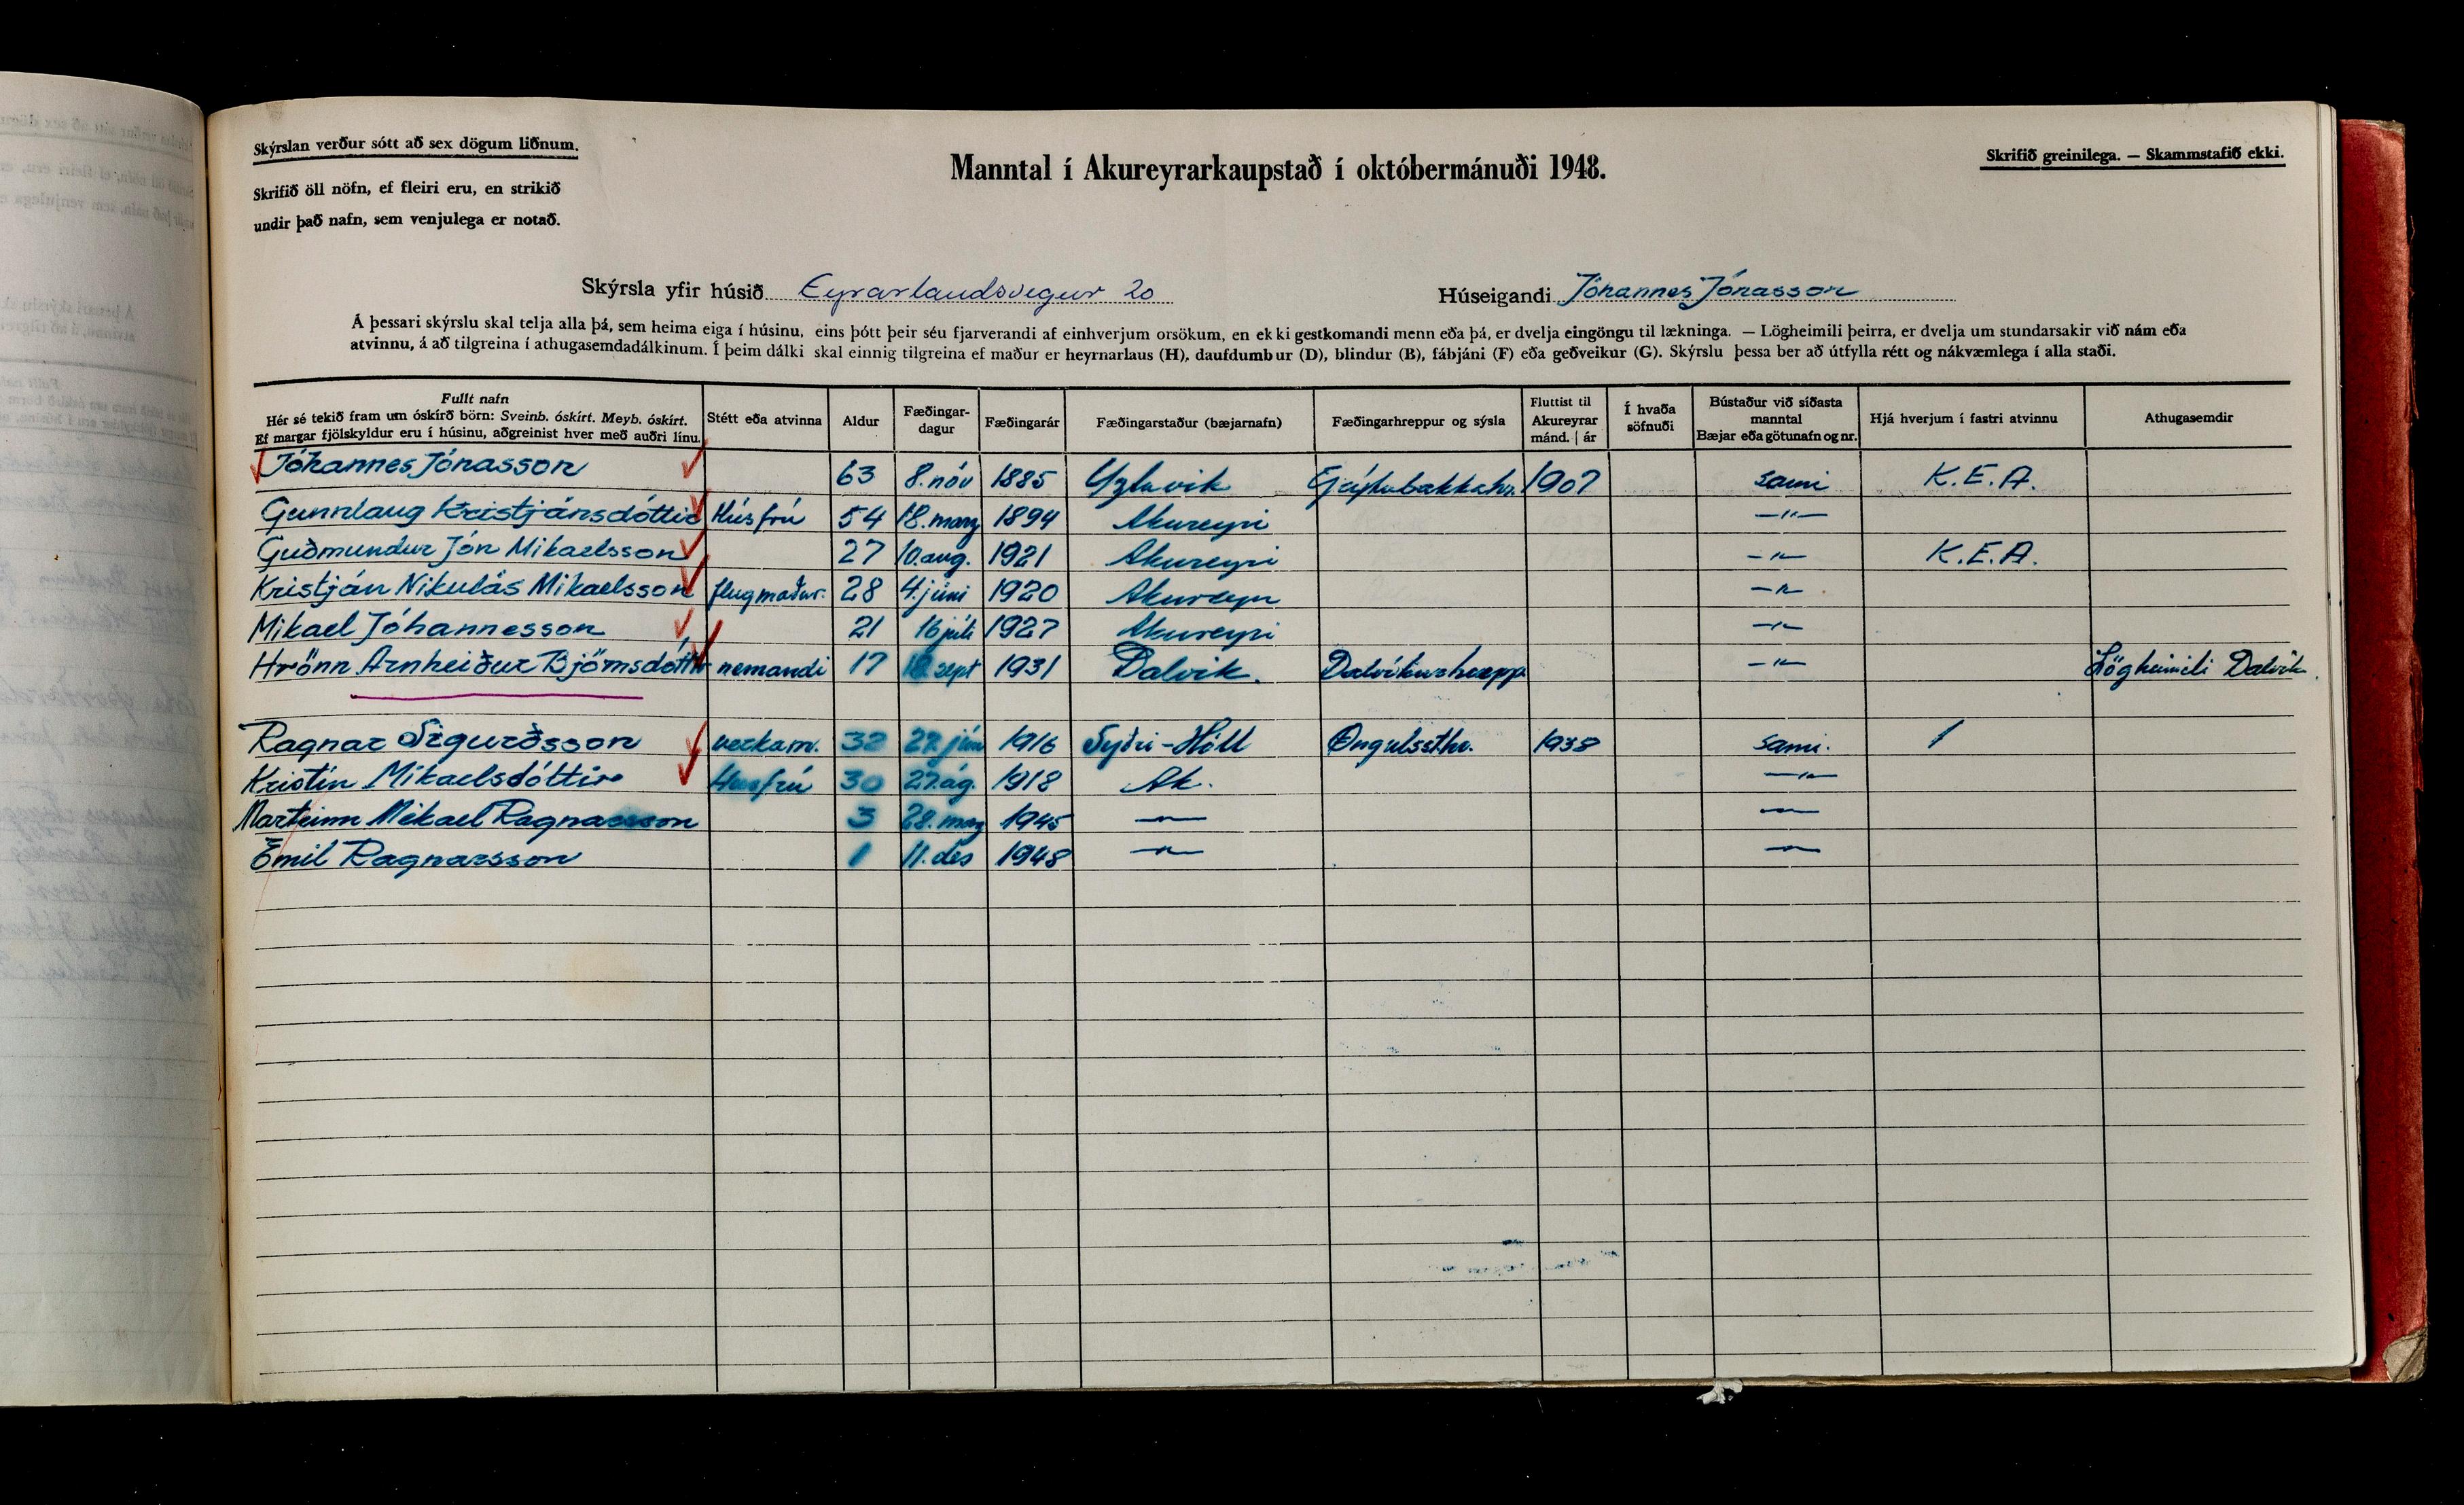 Skýrslan verður sótt að sex dögum liðnum.
Skrifið öll nöfn, ef fleiri eru, en strikið
undir það nafn, sem venjulega er notað.
Manntal í Akureyrarkaupstað í októbermánuði 1948.
Skrifið greinilega. — Skammstafið ekki.
Skýrsla yfir húsið Eyrarlandsvegur 20 Húseigandi Jóhannes Jónasson
Á þessari skýrslu skal telja alla þá, sem heima eiga í húsinu, eins þótt þeir séu fjarverandi af einhverjum orsökum, en ekki gestkomandi menn eða þá, er dvelja eingöngu til lækninga. — Lögheimili þeirra, er dvelja um stundarsakir við nám eða
atvinnu, á að tilgreina í athugasemdadálkinum. Í þeim dálki skal einnig tilgreina ef maður er heyrnarlaus (H), daufdumbur (D), blindur (B), fábjáni (F) eða geðveikur (G). Skýrslu þessa ber að útfylla rétt og nákvæmlega í alla staði.
Fullt nafn
Hér sé tekið fram um óskírð börn: Sveinb. óskírt. Meyb. óskírt.
Ef margar fjölskyldur eru í húsinu, aðgreinist hver með auðri línu.
Stétt eða atvinna
Aldur
Fæðingar-
dagur
Fæðingarár
Fæðingarstaður (bæjarnafn)
Fæðingarhreppur og sýsla
Fluttist til
Akureyrar
mánd. | ár
Í hvaða
söfnuði
Bústaður við síðasta
manntal
Bæjar eða götunafn og nr.
Hjá hverjum í fastri atvinnu
Athugasemdir
Jóhannes Jónasson 63 8. nóv 1885 1907 sami K.E.A.
Gunnlaug Kristjánsdóttir Húsfrú 54 18. marz 1894 Akureyri —"—
Guðmundur Jón Mikaelsson 27 10. aug. 1921 Akureyri —"— K.E.A.
Kristján Nikulás Mikaelsson flugmaður. 28 4. júní 1920 Akureyri —"—
Mikael Jóhannesson 21 16 júlí 1927 Akureyri —"—
Hrönn Arnheiður Björnsdóttir nemandi 17 sept 1931 Dalvik. Dalvíkurhrepp. —"— Lögheimili Dalvik.
Ragnar Sigurðsson verkam. 32 1916 Syðri-Hóll Öngulssthr. 1938 sami. /
Kristín Mikaelsdóttir Húsfrú 30 27. ág. 1918 Ak. —"—
Marteinn Mikael Ragnarsson 3 28. marz 1945 —"— —"—
Emil Ragnarsson 1 11. des 1948 —"— —"—